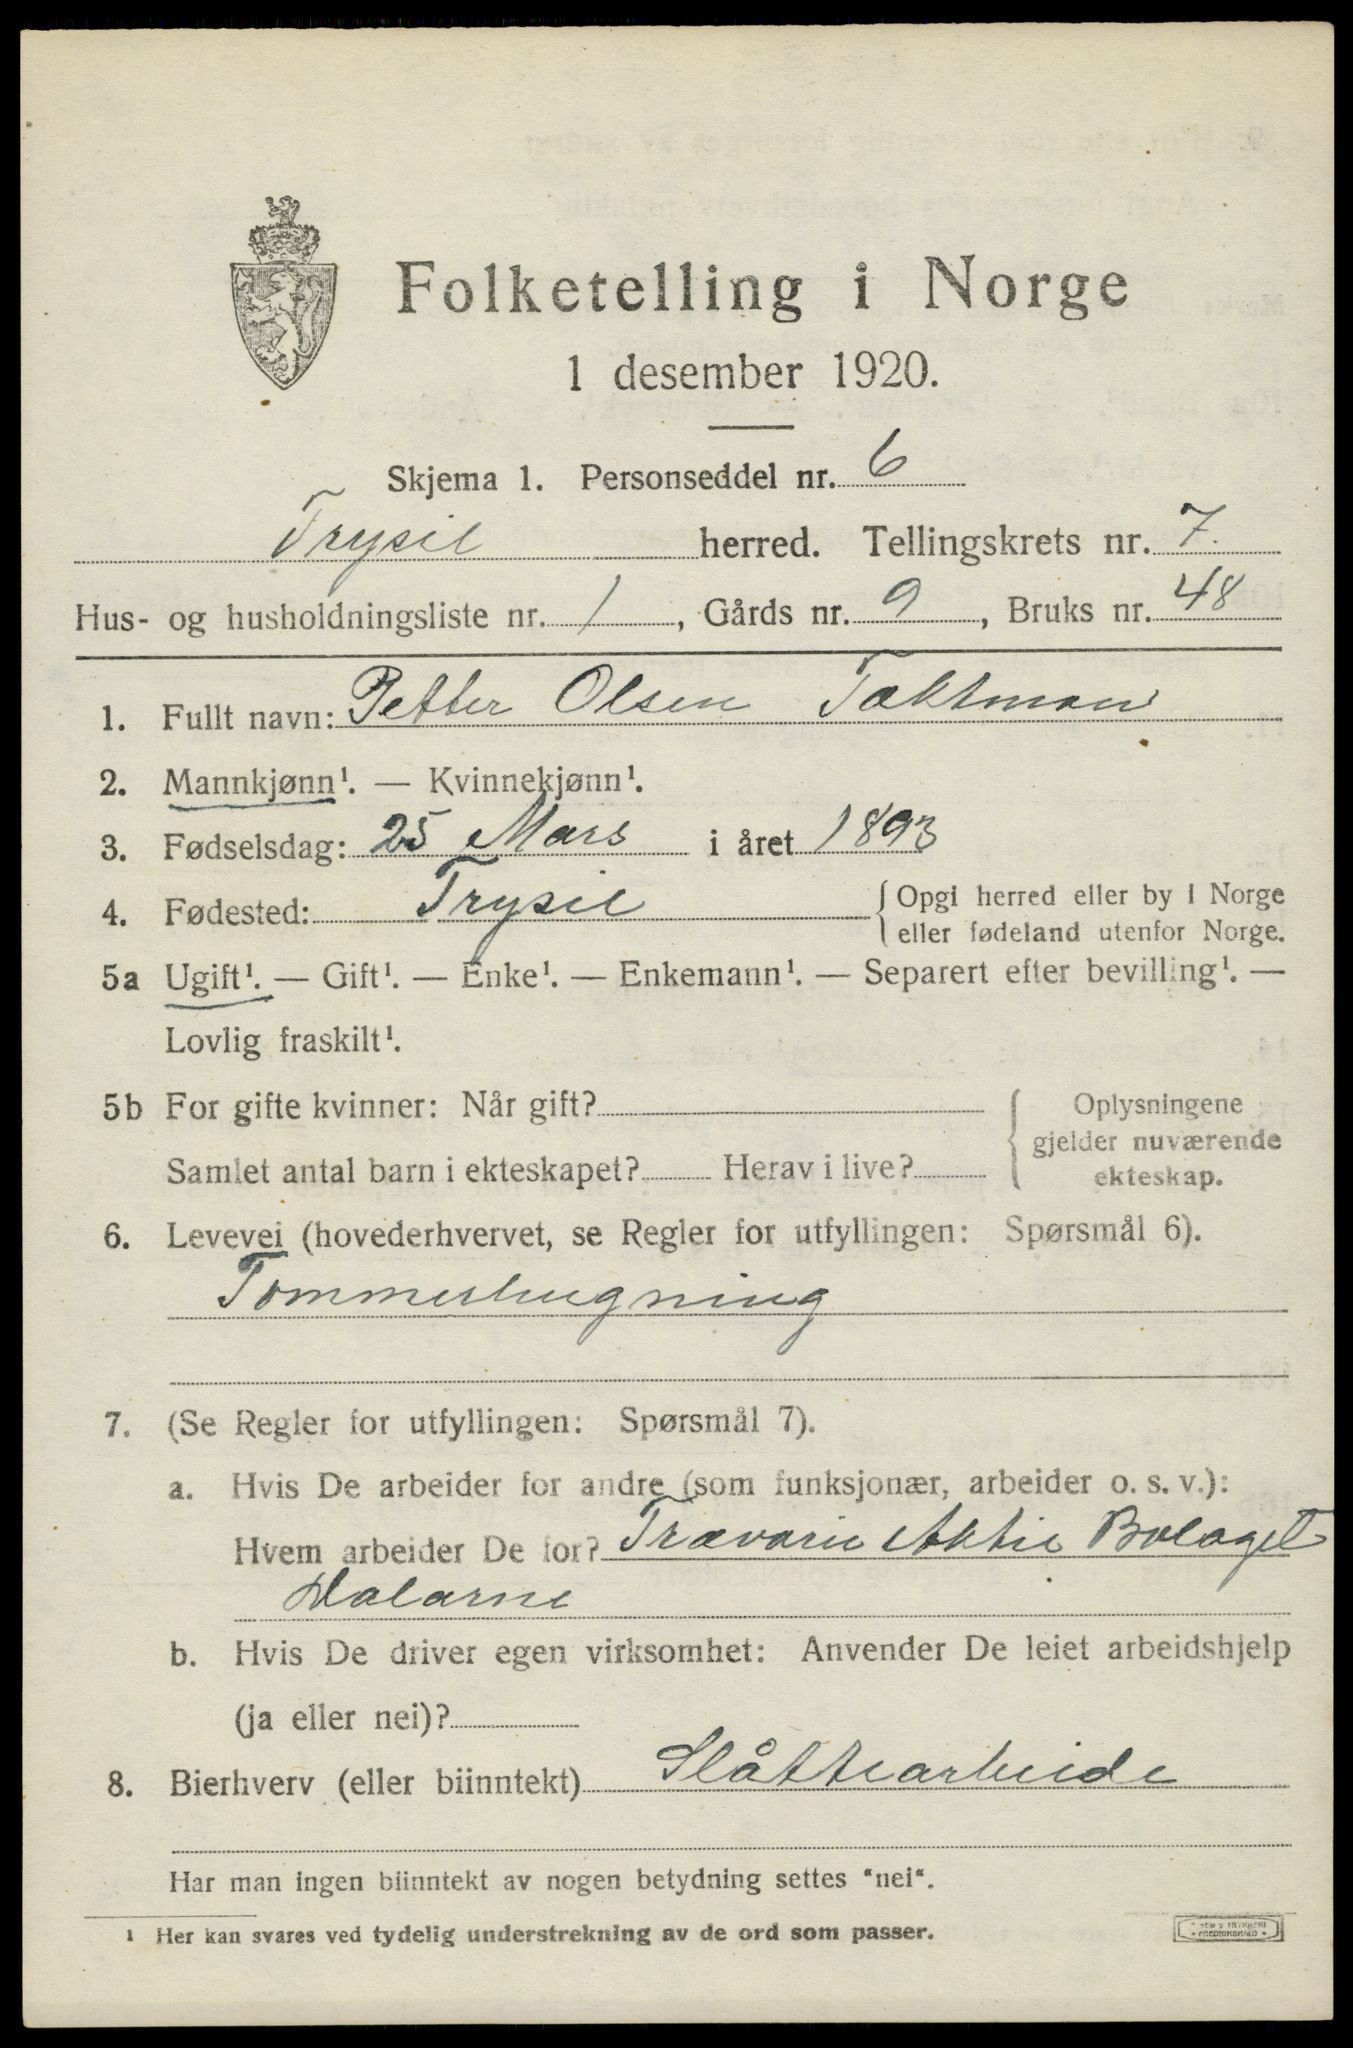 Folketelling i Norge
1 desember 1920.
Skjema 1. Personseddel nr. 6
Trysil herred. Tellingskrets nr. 7.
Hus- og husholdningsliste nr. 1, Gårds nr. 9, Bruks nr. 48
1. Fullt navn: Petter Olsen Taktman
2. Mannkjønn¹. — Kvinnekjønn¹.
3. Fødselsdag: 25 Mars i året 1893
4. Fødested: Trysil { Opgi herred eller by i Norge
eller fødeland utenfor Norge.
5a Ugift¹. — Gift¹. — Enke¹. — Enkemann¹. — Separert efter bevilling¹. —
Lovlig fraskilt¹.
5b For gifte kvinner: Når gift? { Oplysningene
gjelder nuværende
Samlet antal barn i ekteskapet? Herav i live? ekteskap.
6. Levevei (hovederhvervet, se Regler for utfyllingen: Spørsmål 6).
Tømmerhugning
7. (Se Regler for utfyllingen: Spørsmål 7).
a. Hvis De arbeider for andre (som funksjonær, arbeider o. s. v.):
Hvem arbeider De for? Trævarie Aktie Bolaget
Dalarne
b. Hvis De driver egen virksomhet: Anvender De leiet arbeidshjelp
(ja eller nei)?
8. Bierhverv (eller biinntekt) Slåttearbeide
Har man ingen biinntekt av nogen betydning settes "nei".
¹ Her kan svares ved tydelig understrekning av de ord som passer.